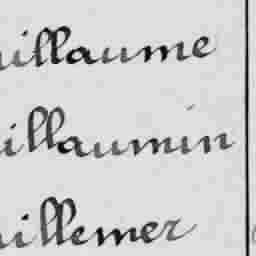 uillaume
uillaumin
uillemer